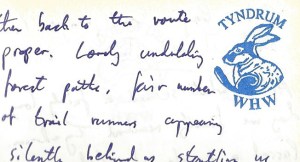 then back to the route
proper. Lovely undulating
forest paths, fair number
of trail runners appearing
silently behind us startling
TYNDRUM
WHW